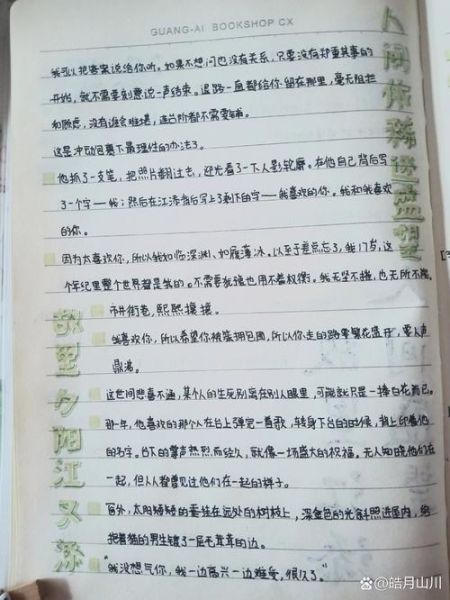 GUANG-AI BOOKSHOP CX
我可以把答案说给你听。如果不想问也没有关系，只要没有郑重其事的
开始，就不需要刻意说一声结束。退路一直都给你留在那里，毫无阻拦
和顾虑，没有谁会难堪，连台阶都不需要铺。
这是冲动包裹下最理性的办法了。
他抓了一支笔，把照片翻过去，迎光看了一下人影轮廓。在他自己背后写
了3个字——我；然后在江添背后写上了剩下的字——我喜欢的你。我和我喜欢
的你。
因为太喜欢你，所以我如临深渊、如履薄冰。以至于差点忘了，我17岁，这
个年纪里整个世界都是我的。不需要犹豫也用不着权衡。我无坚不摧，也无所不能。
市井街巷，熙熙攘攘。
我喜欢你，所以希望你被簇拥包围，所以你走的路要繁花盛开，要人声
鼎沸。
这世间悲喜不通，某个人的生死别离在别人眼里，可能就只是一捧白花而已。
那一年，他喜欢的那个人在台上弹完一首歌，转身下台的时候，背上印着他
的名字。台下的掌声热烈而经久，就像一场盛大的祝福。无人知晓他们在
一起，但人人都看见过他们在一起的样子。
窗外，太阳矮矮的垂挂在远处的树枝上，深金色的光斜照进屋内，给
抱着猫的男生镶了一层毛茸茸的边。
“我没想气你，我一边高兴一边难受，很久了。”
胡里夕阳江又添
@皓月山川